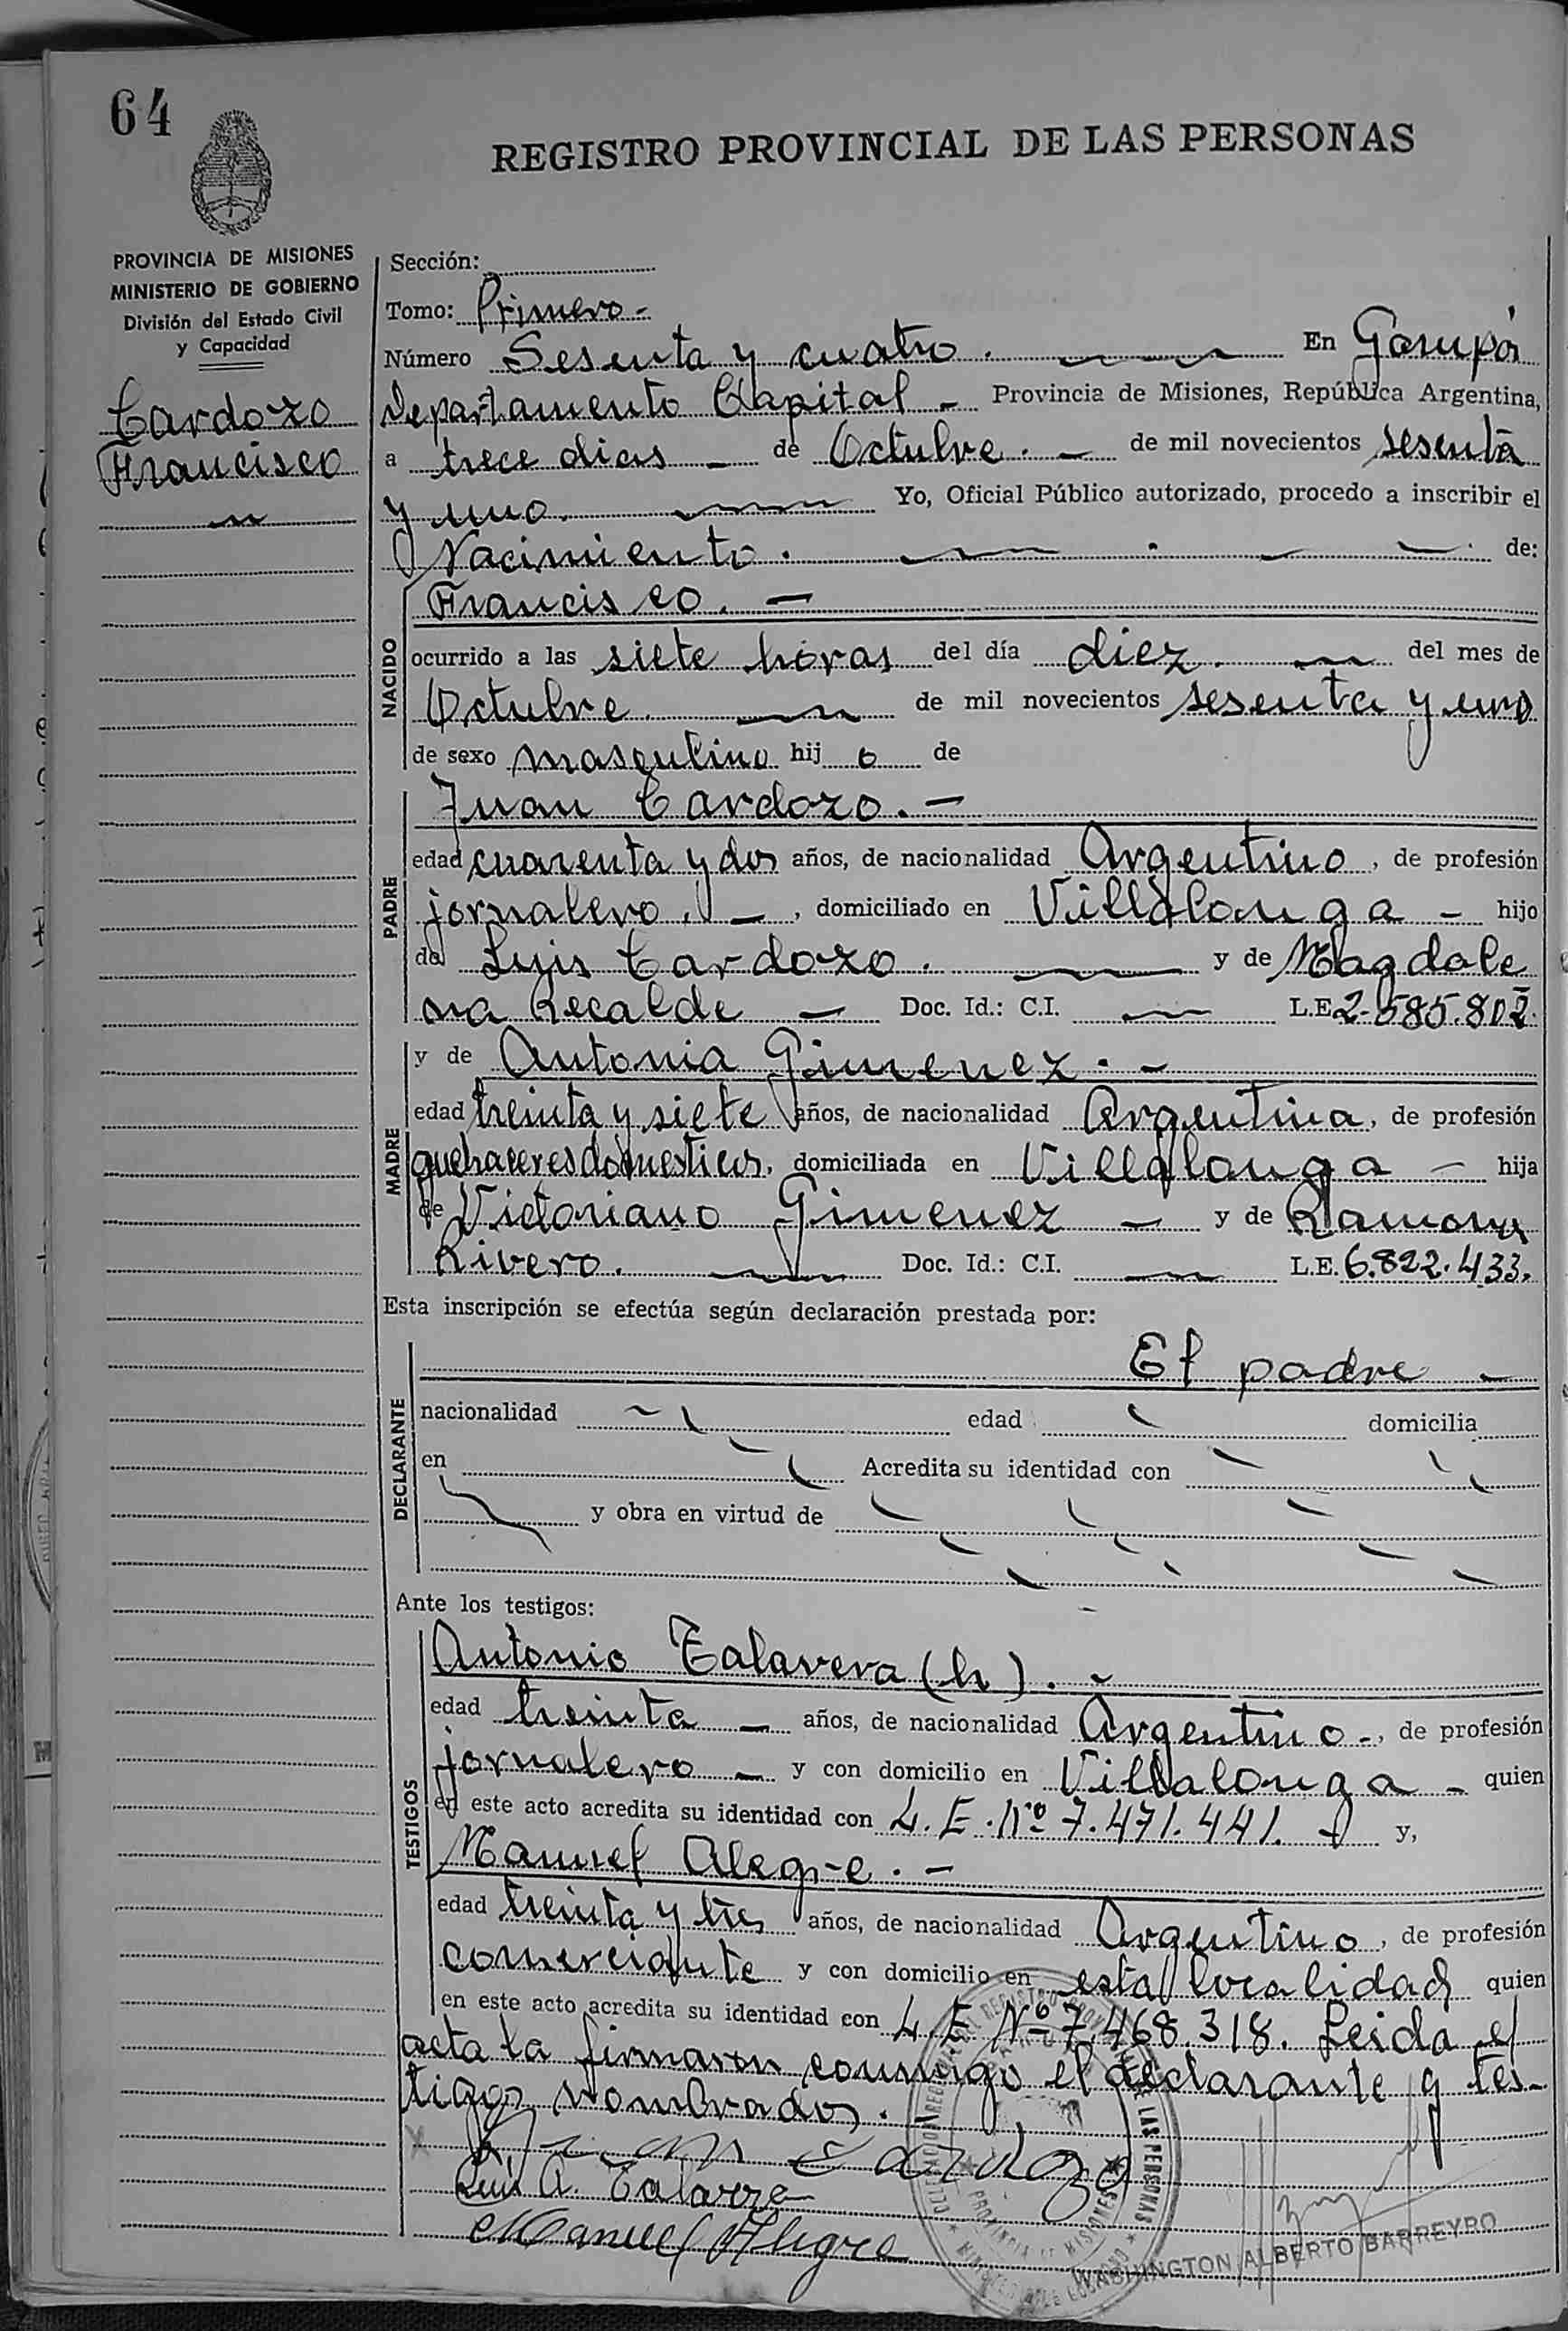 64
REGISTRO PROVINCIAL DE LAS PERSONAS
PROVINCIA DE MISIONES
MINISTERIO DE GOBIERNO
División del Estado Civil
y Capacidad
Cardozo
Francisco
Sección:
Tomo: Primero -
Número Sesenta y cuatro. En Garupá
Departamento Capital - Provincia de Misiones, República Argentina,
a trece dias - de Octubre. - de mil novecientos sesenta
y uno. Yo, Oficial Público autorizado, procedo a inscribir el
Nacimiento. de:
NACIDO
Francisco. -
ocurrido a las siete horas del día diez. del mes de
Octubre. de mil novecientos sesenta y uno
de sexo masculino hij o de
PADRE
Juan Cardozo. -
edad cuarenta y dos años, de nacionalidad Argentino, de profesión
jornalero. -, domiciliado en Villalonga - hijo
de Luis Cardozo. y de Magdale
na Recalde - Doc. Id.: C.I. L.E. 2.585.802.
MADRE
y de Antonia Gimenez. -
edad treinta y siete años, de nacionalidad Argentina, de profesión
quehaceres domesticos, domiciliada en Villalonga - hija
de Victoriano Gimenez - y de Ramona
Rivero. Doc. Id.: C.I. L.E. 6.822.433.
Esta inscripción se efectúa según declaración prestada por:
DECLARANTE
El padre -
nacionalidad edad domicilia
en Acredita su identidad con
y obra en virtud de
Ante los testigos:
TESTIGOS
Antonio Talavera (h). -
edad treinta - años, de nacionalidad Argentino -, de profesión
jornalero - y con domicilio en Villalonga - quien
en este acto acredita su identidad con L.E. Nº 7.471.441. y,
Manuel Alegre. -
edad treinta y tres años, de nacionalidad Argentino, de profesión
comerciante y con domicilio en esta localidad quien
en este acto acredita su identidad con L.E. Nº 7.468.318. Leida el
acta la firmaron conmigo el declarante y tes-
tigos nombrados. -
Juan Cardozo
Luis A. Talavera
Manuel Alegre
WASHINGTON ALBERTO BARREYRO